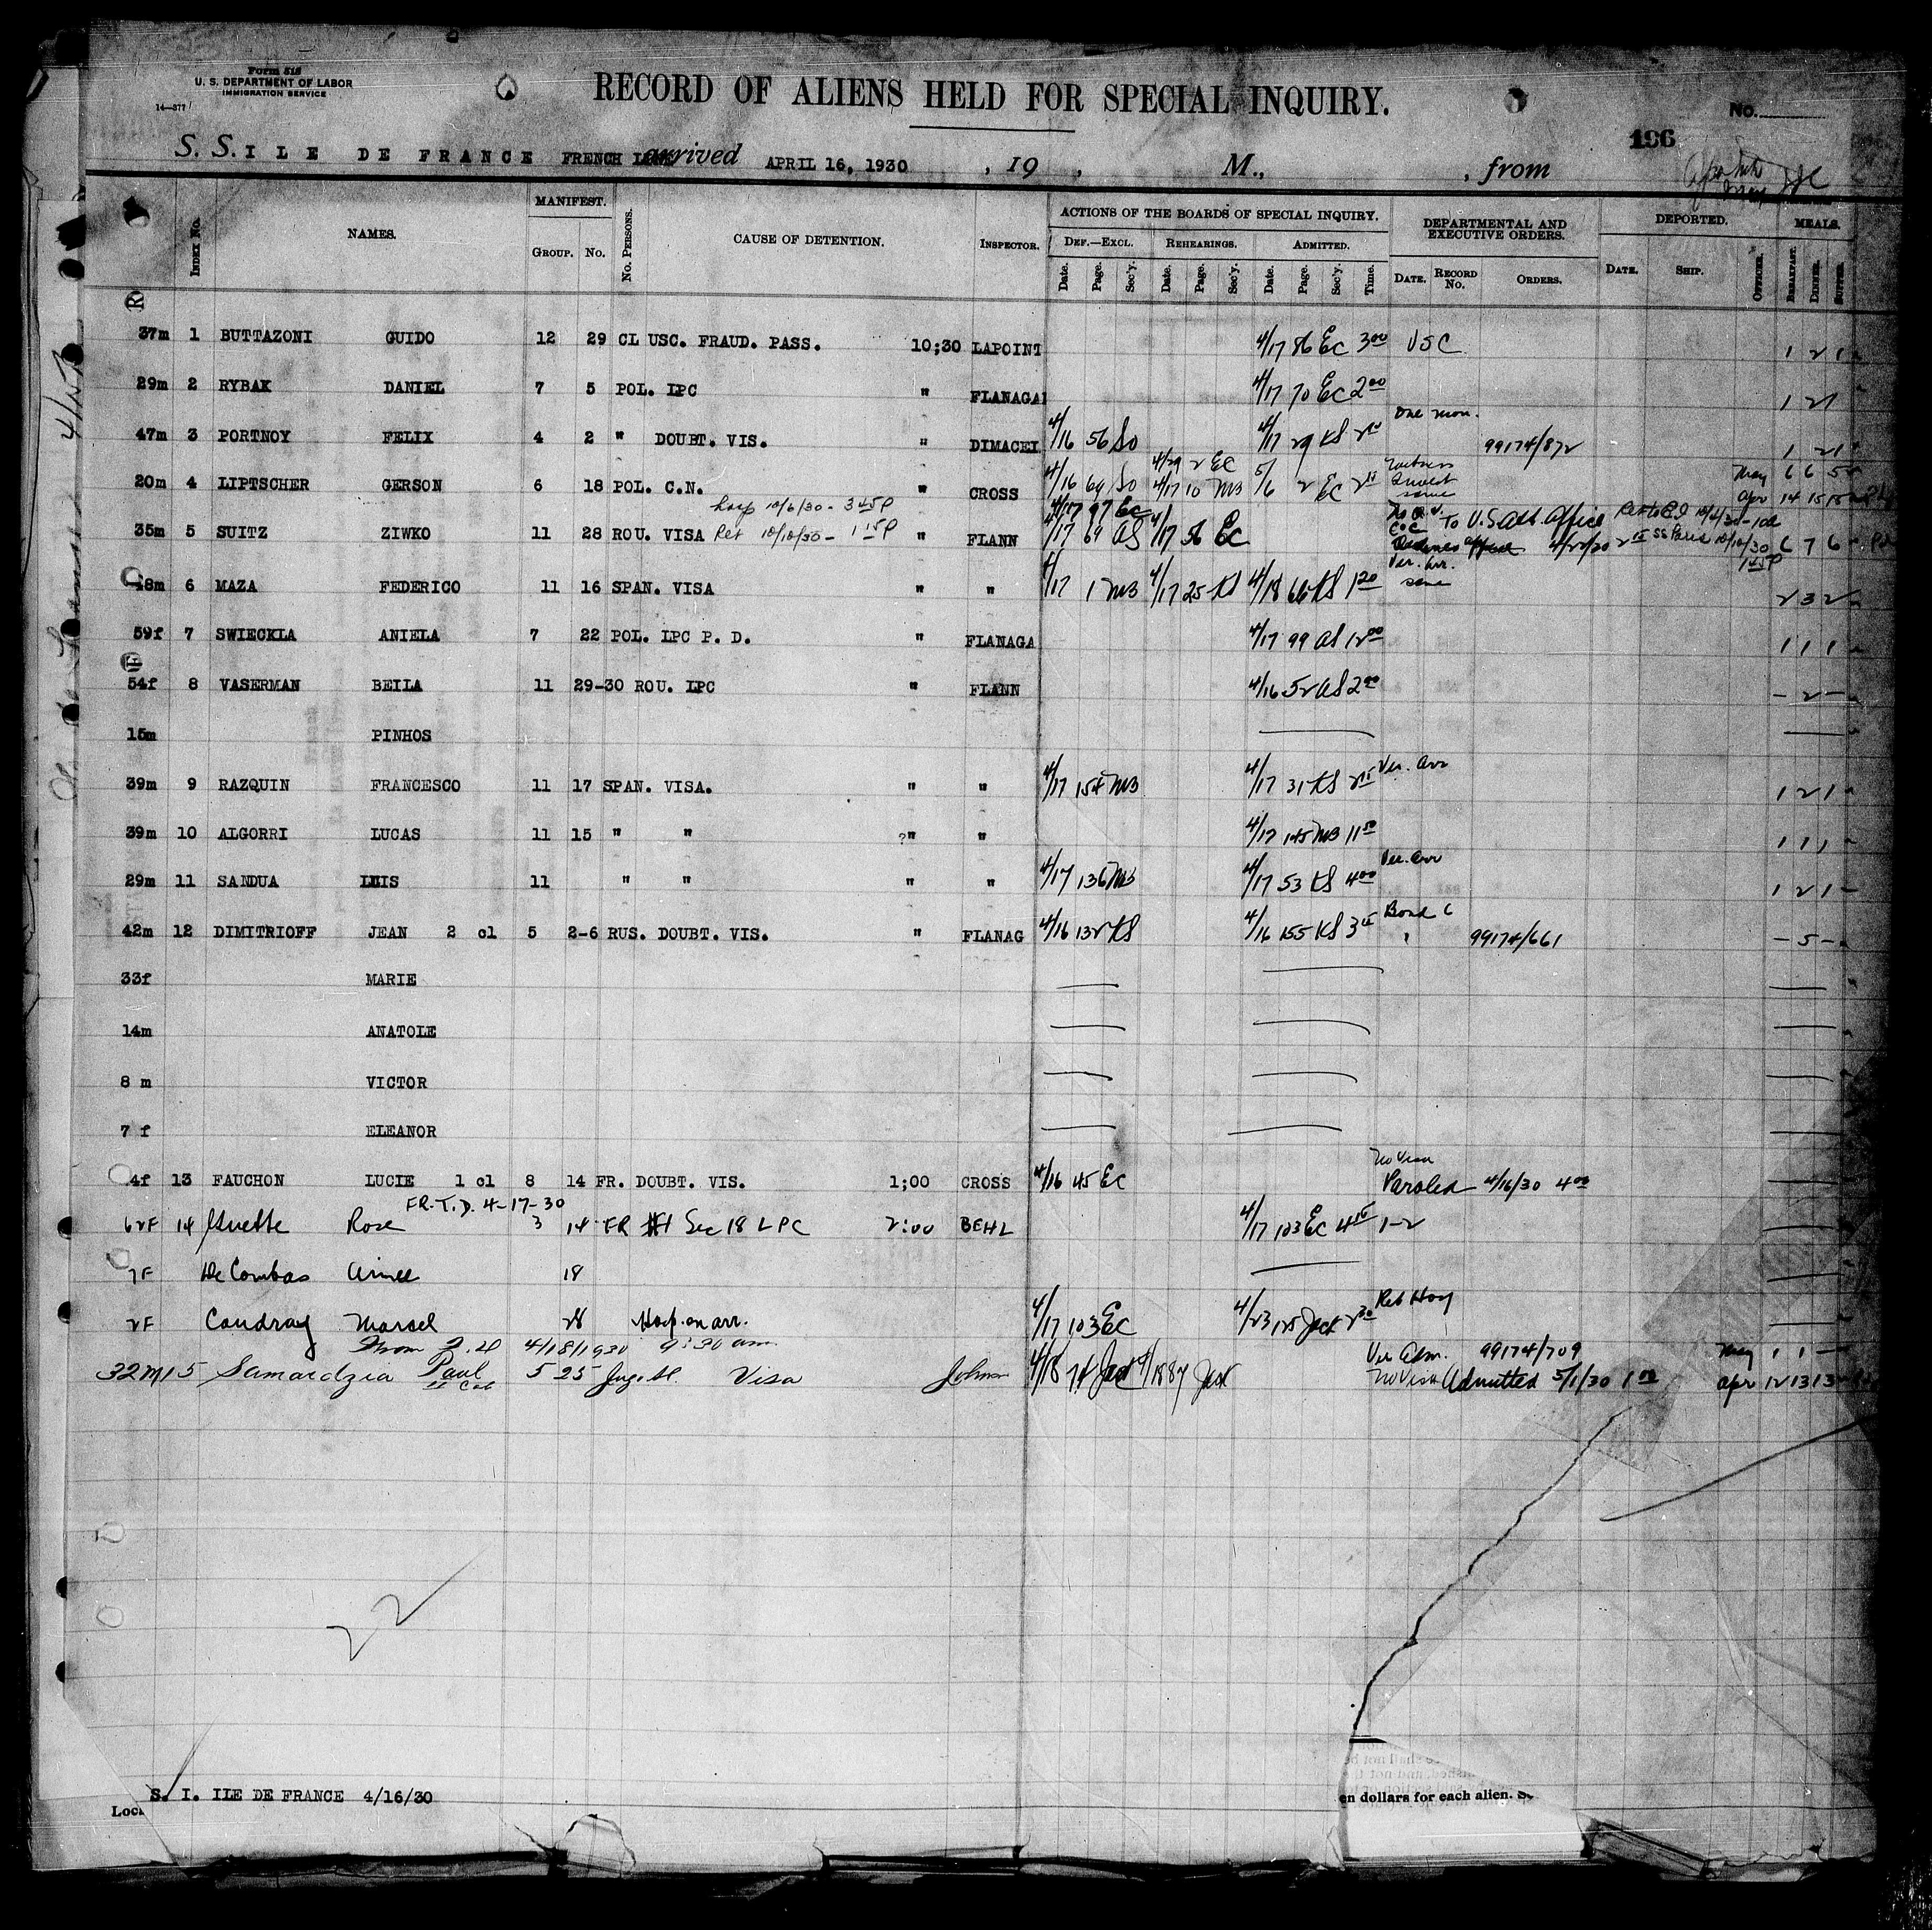 Form 518
U. S. DEPARTMENT OF LABOR
IMMIGRATION SERVICE
14—377
RECORD OF ALIENS HELD FOR SPECIAL INQUIRY.
No.
196
S. S. ILE DE FRANCE FRENCH LINE arrived APRIL 16, 1930 , 19 , M., , from
INDEX No. NAMES. MANIFEST. GROUP. No. No. PERSONS. CAUSE OF DETENTION. INSPECTOR. ACTIONS OF THE BOARDS OF SPECIAL INQUIRY. DEF.—EXCL. Date. Page. Sec'y. REHEARINGS. Date. Page. Sec'y. ADMITTED. Date. Page. Sec'y. Time. DEPARTMENTAL AND EXECUTIVE ORDERS. DATE. RECORD No. ORDERS. DEPORTED. DATE. SHIP. OFFICER. MEALS. BREAKFAST. DINNER. SUPPER.
37m 1 BUTTAZONI GUIDO 12 29 CL USC. FRAUD. PASS. 10;30 LAPOINT 4/17 86 EC 3 00 USC 1 2 1
29m 2 RYBAK DANIEL 7 5 POL. LPC " FLANAGA 4/17 70 EC 2 00 1 2 1
One mon.
47m 3 PORTNOY FELIX 4 2 " DOUBT. VIS. " DIMACEI 4/16 56 SO 4/17 29 KS 99174/872 1 2 1
4/29 2 EC
20m 4 LIPTSCHER GERSON 6 18 POL. C.N. " CROSS 4/16 64 SO 4/17 10 MB 5/6 2 EC May 6 6 5
Apr 14 15 15
Hosp 10/6/30 - 3 45 P 4/17 97 EC
35m 5 SUITZ ZIWKO 11 28 ROU. VISA Ret 10/10/30 - 1 15 P " FLANN 4/17 69 AS 4/17 56 EC To U.S Att. Office SS Paris 10/10/30 6 7 6
Ver. arr.
48m 6 MAZA FEDERICO 11 16 SPAN. VISA " " 4/17 1 MB 4/17 25 KS 4/18 66 KS 1 20 same 2 3 2
59f 7 SWIECKLA ANIELA 7 22 POL. LPC P. D. " FLANAGA 4/17 99 AS 12 00 1 1 1
54f 8 VASERMAN BEILA 11 29-30 ROU. LPC " FLANN 4/16 52 AS 2 00 - 2 -
15m PINHOS
39m 9 RAZQUIN FRANCESCO 11 17 SPAN. VISA. " " 4/17 154 MB 4/17 31 KS Ver. arr 1 2 1
39m 10 ALGORRI LUCAS 11 15 " " ?" " 4/17 145 MB 11 50 1 1 1
29m 11 SANDUA LUIS 11 " " " " 4/17 136 MB 4/17 53 KS 4 00 Ver. arr 1 2 1
42m 12 DIMITRIOFF JEAN 2 cl 5 2-6 RUS. DOUBT. VIS. " FLANAG 4/16 132 KS 4/16 155 KS 3 15 Bond 99174/661 - 5 -
33f MARIE
14m ANATOLE
8 m VICTOR
7 f ELEANOR
No Visa
4f 13 FAUCHON LUCIE 1 cl 8 14 FR. DOUBT. VIS. 1;00 CROSS 4/16 45 EC Paroled 4/16/30 4 00
FR. T. D. 4-17-30
62F 14 Rose 3 14 FR Sec 18 LPC 2:00 BEHL 4/17 103 EC 4 15 1-2
7F De Combas Aimee 18
2F Coudray Marcel 28 Hosp. on arr. 4/17 103 EC 4/23 125 Jack 2 30
From 4/18/1930 9:30 am Ver Adm. 99174/709 May 1 1 -
32m 15 Samardzia Paul 5 25 Visa Johnson 4/18 74 Jack 4/18 87 Jack No Visa Admitted 5/1/30 1 00 Apr 12 13 13
22
S. I. ILE DE FRANCE 4/16/30
en dollars for each alien.